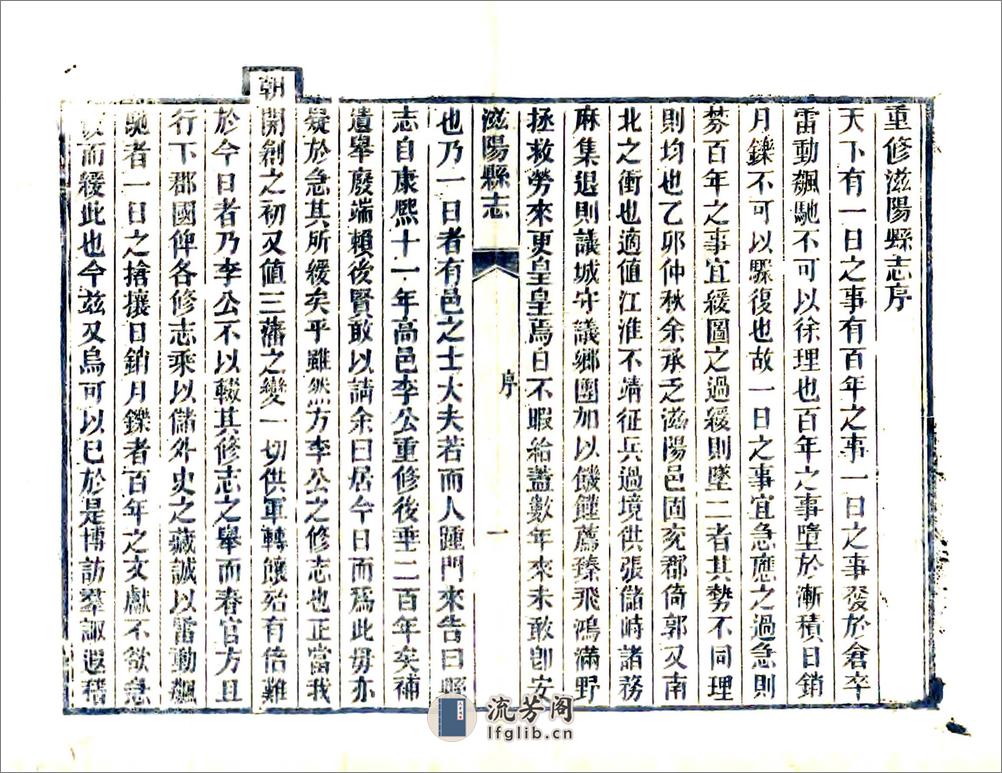 重修滋陽縣志序
天下有一日之事有百年之事一日之事發於倉卒
雷動飆馳不可以徐理也百年之事墮於漸積日銷
月鑠不可以驟復也故一日之事宜急應之過急則
棼百年之事宜緩圖之過緩則墜二者其勢不同理
則均也乙卯仲秋余承乏滋陽邑固兖郡倚郭又南
北之衝也適值江淮不靖征兵過境供張儲峙諸務
麻集退則議城守議鄉團加以饑饉薦臻飛鴻滿野
拯救勞來更皇皇焉日不暇給蓋數年來未敢卽安
滋陽縣志
序
一
也乃一日者有邑之士大夫若而人踵門來告曰縣
志自康熙十一年高邑李公重修後垂二百年矣補
遺舉廢端賴後賢敢以請余曰居今日而爲此毋亦
疑於急其所緩矣乎雖然方李公之修志也正當我
朝開創之初又値三藩之變一切供軍轉饟殆有倍難
於今日者乃李公不以輟其修志之舉而春官方且
行下郡國俾各修志乘以儲外史之藏誠以雷動飆
馳者一日之搶攘日銷月鑠者百年之文獻不欲急
彼而緩此也今玆又烏可以已於是博訪羣諏遐稽
流芳阁
lfglib.cn